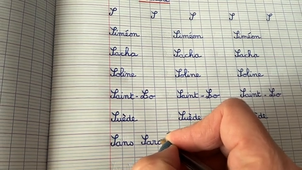 S S S S S
Siméon Siméon Siméon
Sacha Sacha Sacha
Soline Soline Soline
Saint-Lo Saint-Lo Saint-Lo
Suède Suède
Sans